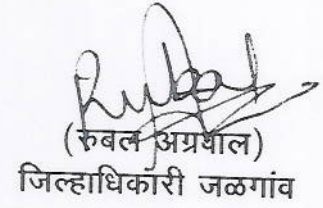 (रुबल अग्रवाल)
जिल्हाधिकारी जळगांव